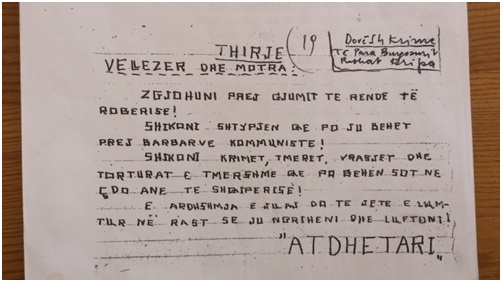 THIRJE
( 19
Dorësh Krime
Te Para Burgosurit
VELLEZER DHE MOTRA.
ZGJOHUNI PREJ GJUMIT TE RENDE TË
ROBERISE!
SHIKONI SHTYPJEN QE PO JU BEHET
PREJ BARBARVE KOMMUNISTE!
SHIKONI KRIMET, TMERET, VRASJET DHE
TORTURAT E TMERSHME QE PO BEHEN SOT NE
ÇDO ANE TE SHQIPERISE!
E ARDHSHMJA E SILAJ DO TE JETE E LUM-
TUR NË RAST SE JU NGRIHENI DHE LUFTONI!
"ATDHETARI"